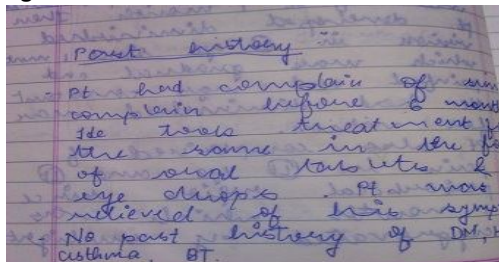 Past history
Pt had complain of
complain before 6 mont
He took treatment f
the same in the fo
of oral tablets &
eye drops. Pt was
relieved of his symp
- No past history of DM, H
asthma, BT.